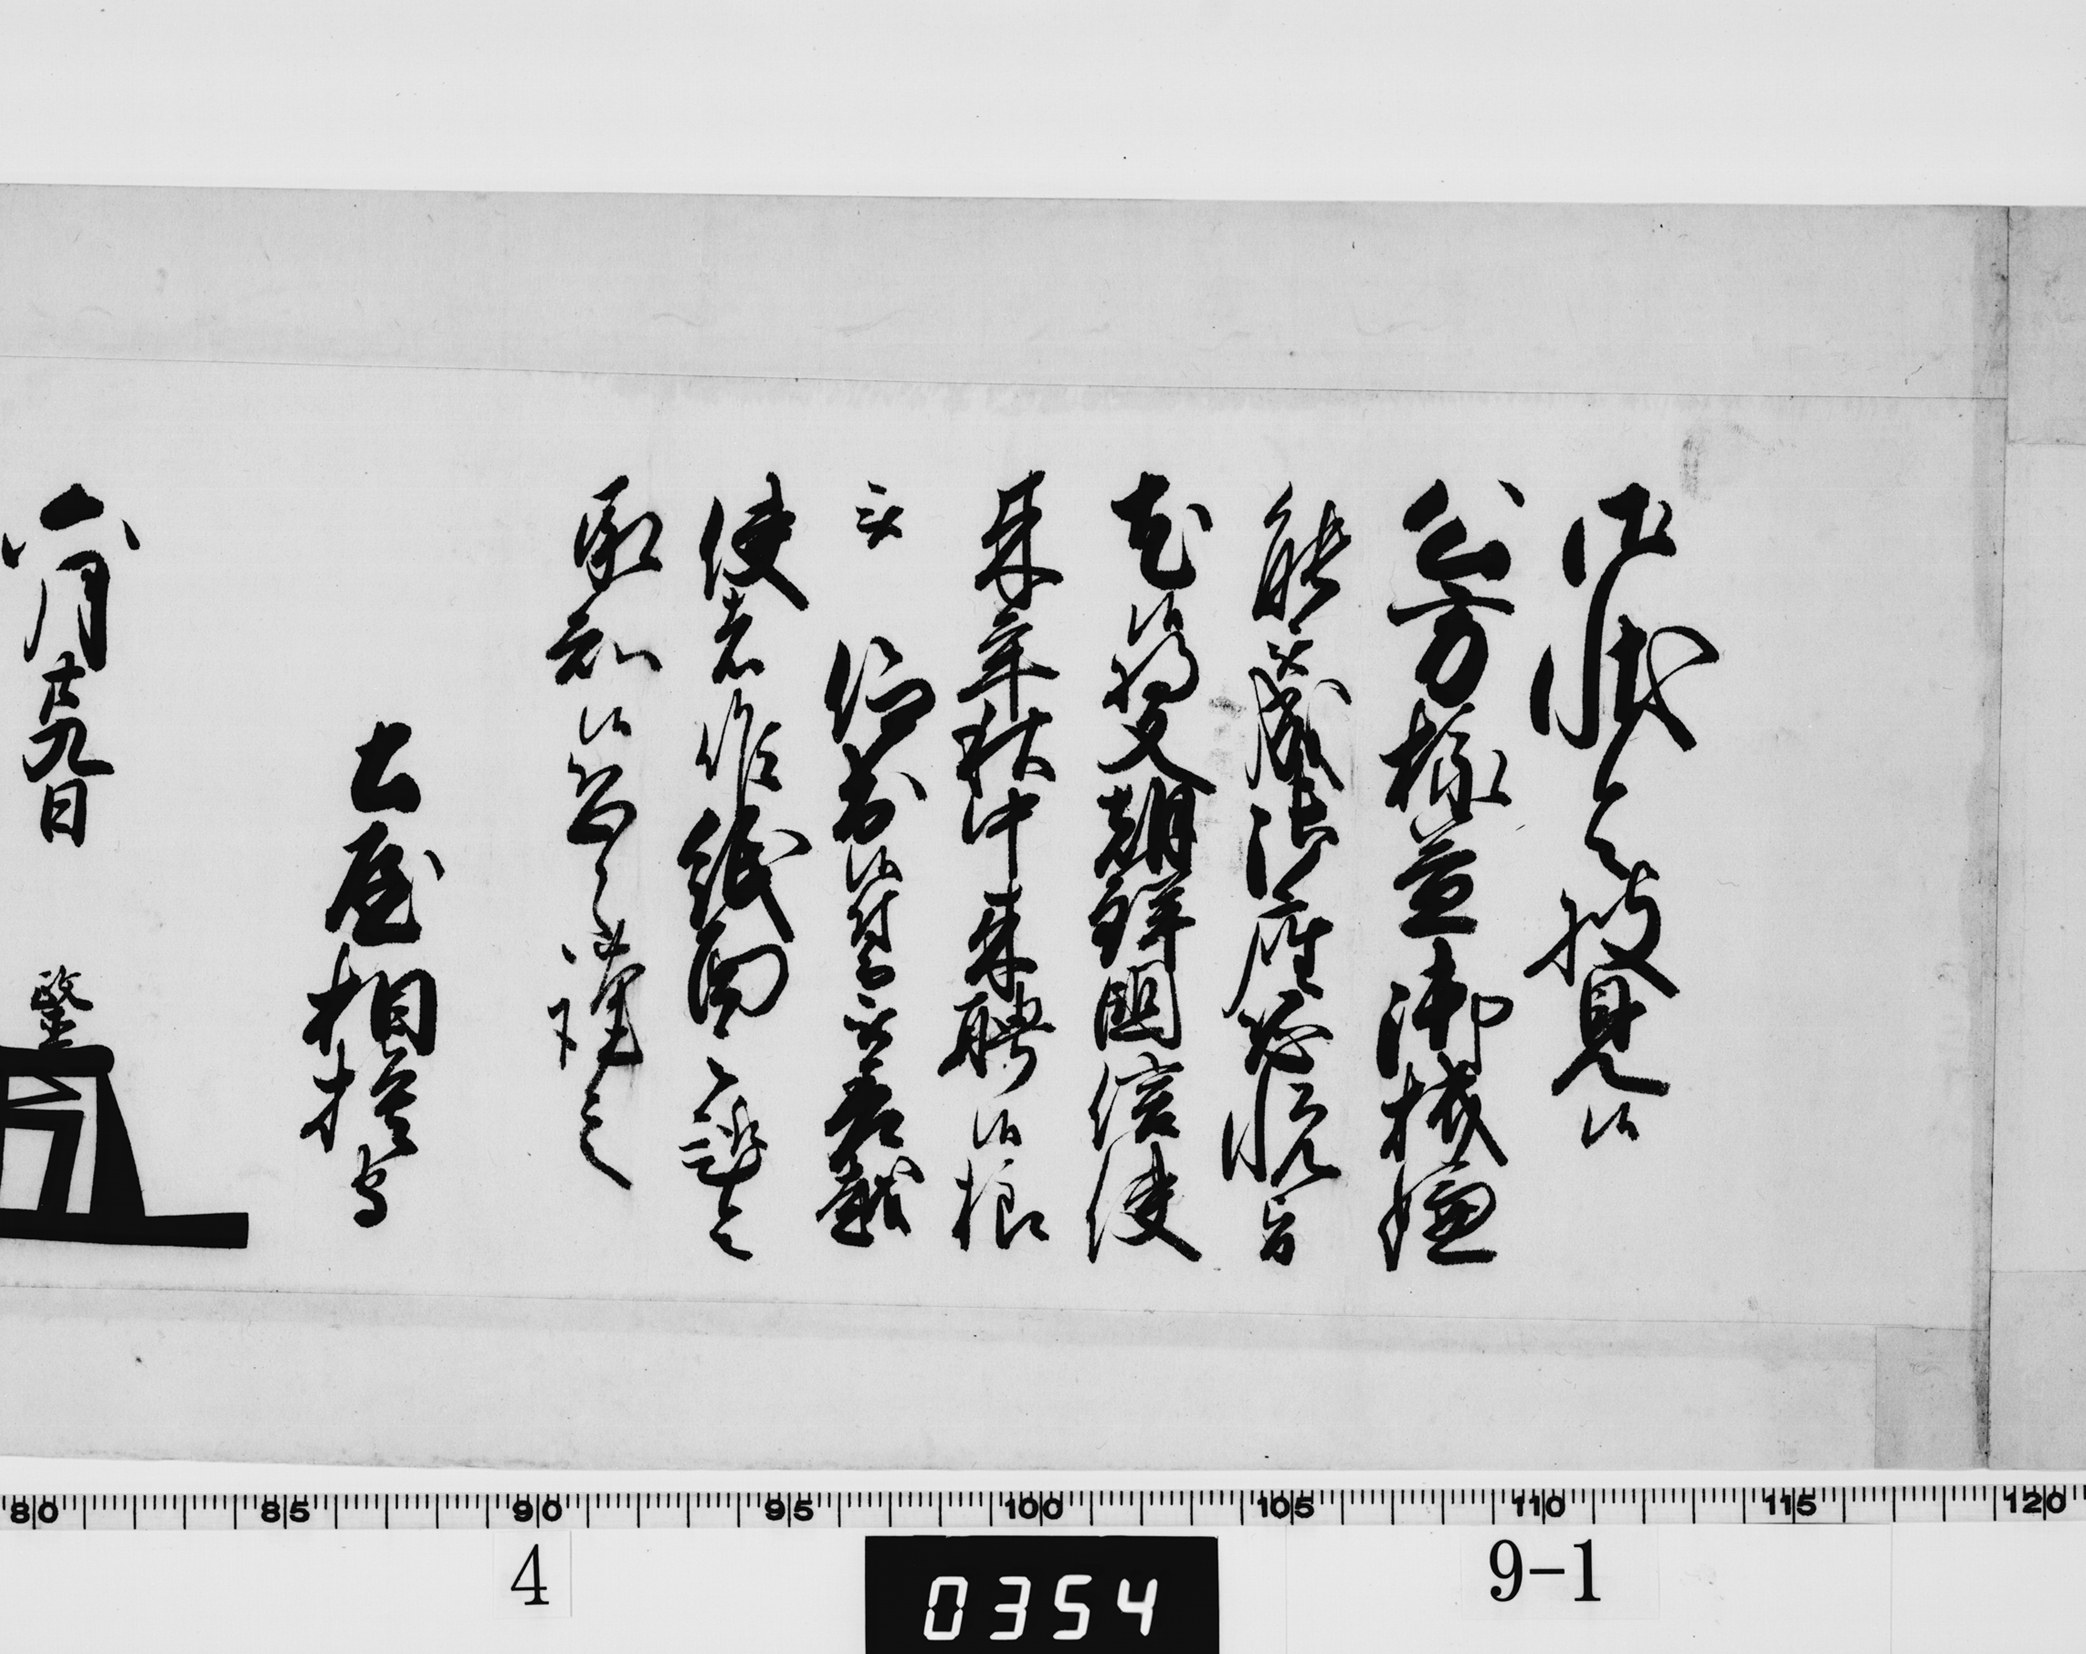 御状令披見候
公方様益御機嫌
能被成御座恐悦旨
尤候将又朝鮮国信使
来年秋中来聘候様
被 仰出候付而被差越
使者紙面之趣令
承知候恐々謹言
土屋相模守
六月廿九日 政直
80 85 90 95 100 105 110 115 120
4 0354 9-1